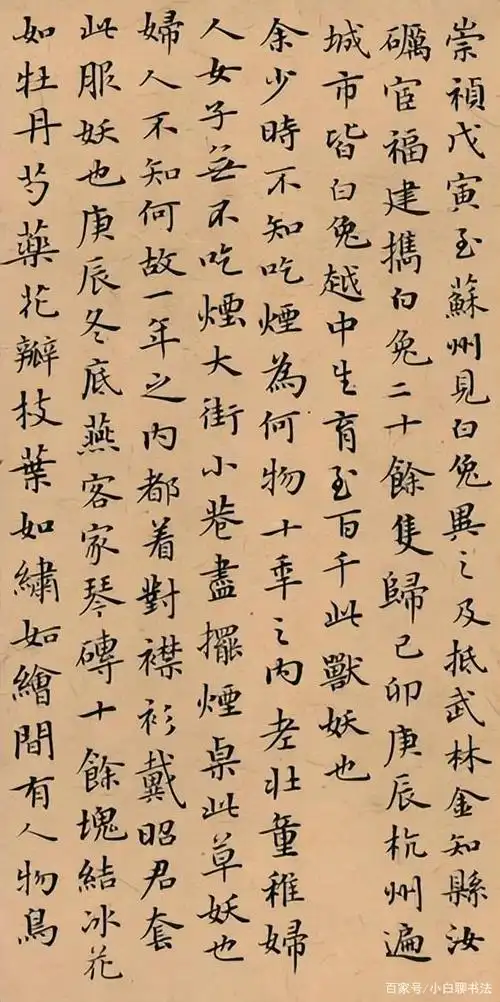 崇禎戊寅至蘇州見白兔異之及抵武林金知縣汝
礪宦福建攜白兔二十餘隻歸己卯庚辰杭州遍
城市皆白兔越中生育至百千此獸妖也
余少時不知吃煙為何物十年之内老壯童稚婦
人女子無不吃煙大街小巷盡擺煙桌此草妖也
婦人不知何故一年之内都着對襟衫戴昭君套
此服妖也庚辰冬底燕客家琴磚十餘塊結冰花
如牡丹芍藥花瓣枝葉如繡如繪間有人物鳥
百家号/小白聊书法